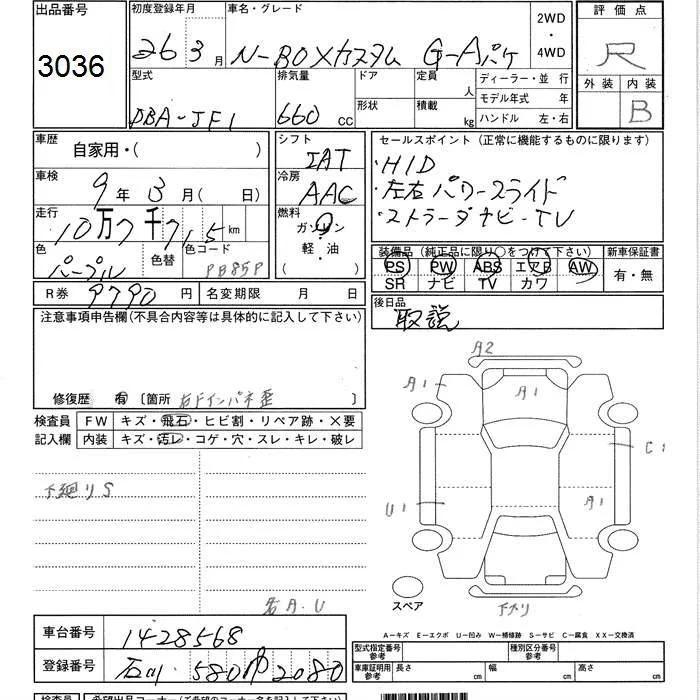 出品番号 初度登録年月 車名・グレード 2WD・4WD 評価点
3036 26 3月 N-BOXカスタム G-Aパケ R
型式 排気量 ドア 定員 人 ディーラー・並行 外装 内装
DBA-JF1 660 CC 形状 積載 kg モデル年式 年 B
ハンドル 左・右
車歴 自家用・( ) シフト IAT セールスポイント (正常に機能するものに限ります)
・HID
車検 9年3月(日) 冷房 AAC ・左右パワースライド
走行 10万7千71.5km 燃料 ガソリン ・ストラーダナビ・TV
軽・油
( )
色 パープル 色替 色コード PB85P
装備品 (純正品に限り○をつけて下さい) 新車保証書
PS PW ABS エアB AW 有・無
SR ナビ TV カワ
R券 9790円 名変期限 月 日 後日品
取説
注意事項申告欄(不具合内容等は具体的に記入して下さい)
修復歴 有 [箇所 右Fインパネ歪 ]
検査員 FW キズ・飛石・ヒビ割・リペア跡・×要
記入欄 内装 キズ・汚レ・コゲ・穴・スレ・キレ・破レ
下廻りS
A2
A1 A1
C1
U1 A1
スペア 下ナリ
A.U
A-キズ E-エクボ U-凹み W-補修跡 S-サビ C-腐食 XX-交換済
車台番号 1428568
登録番号 石川 580 2080
型式指定番号 参考 種別区分番号 参考
車庫証明用 参考 長さ cm 幅 cm 高さ cm
検査員 希望出品コーナー(ご希望のコーナー名を記入して下さい)